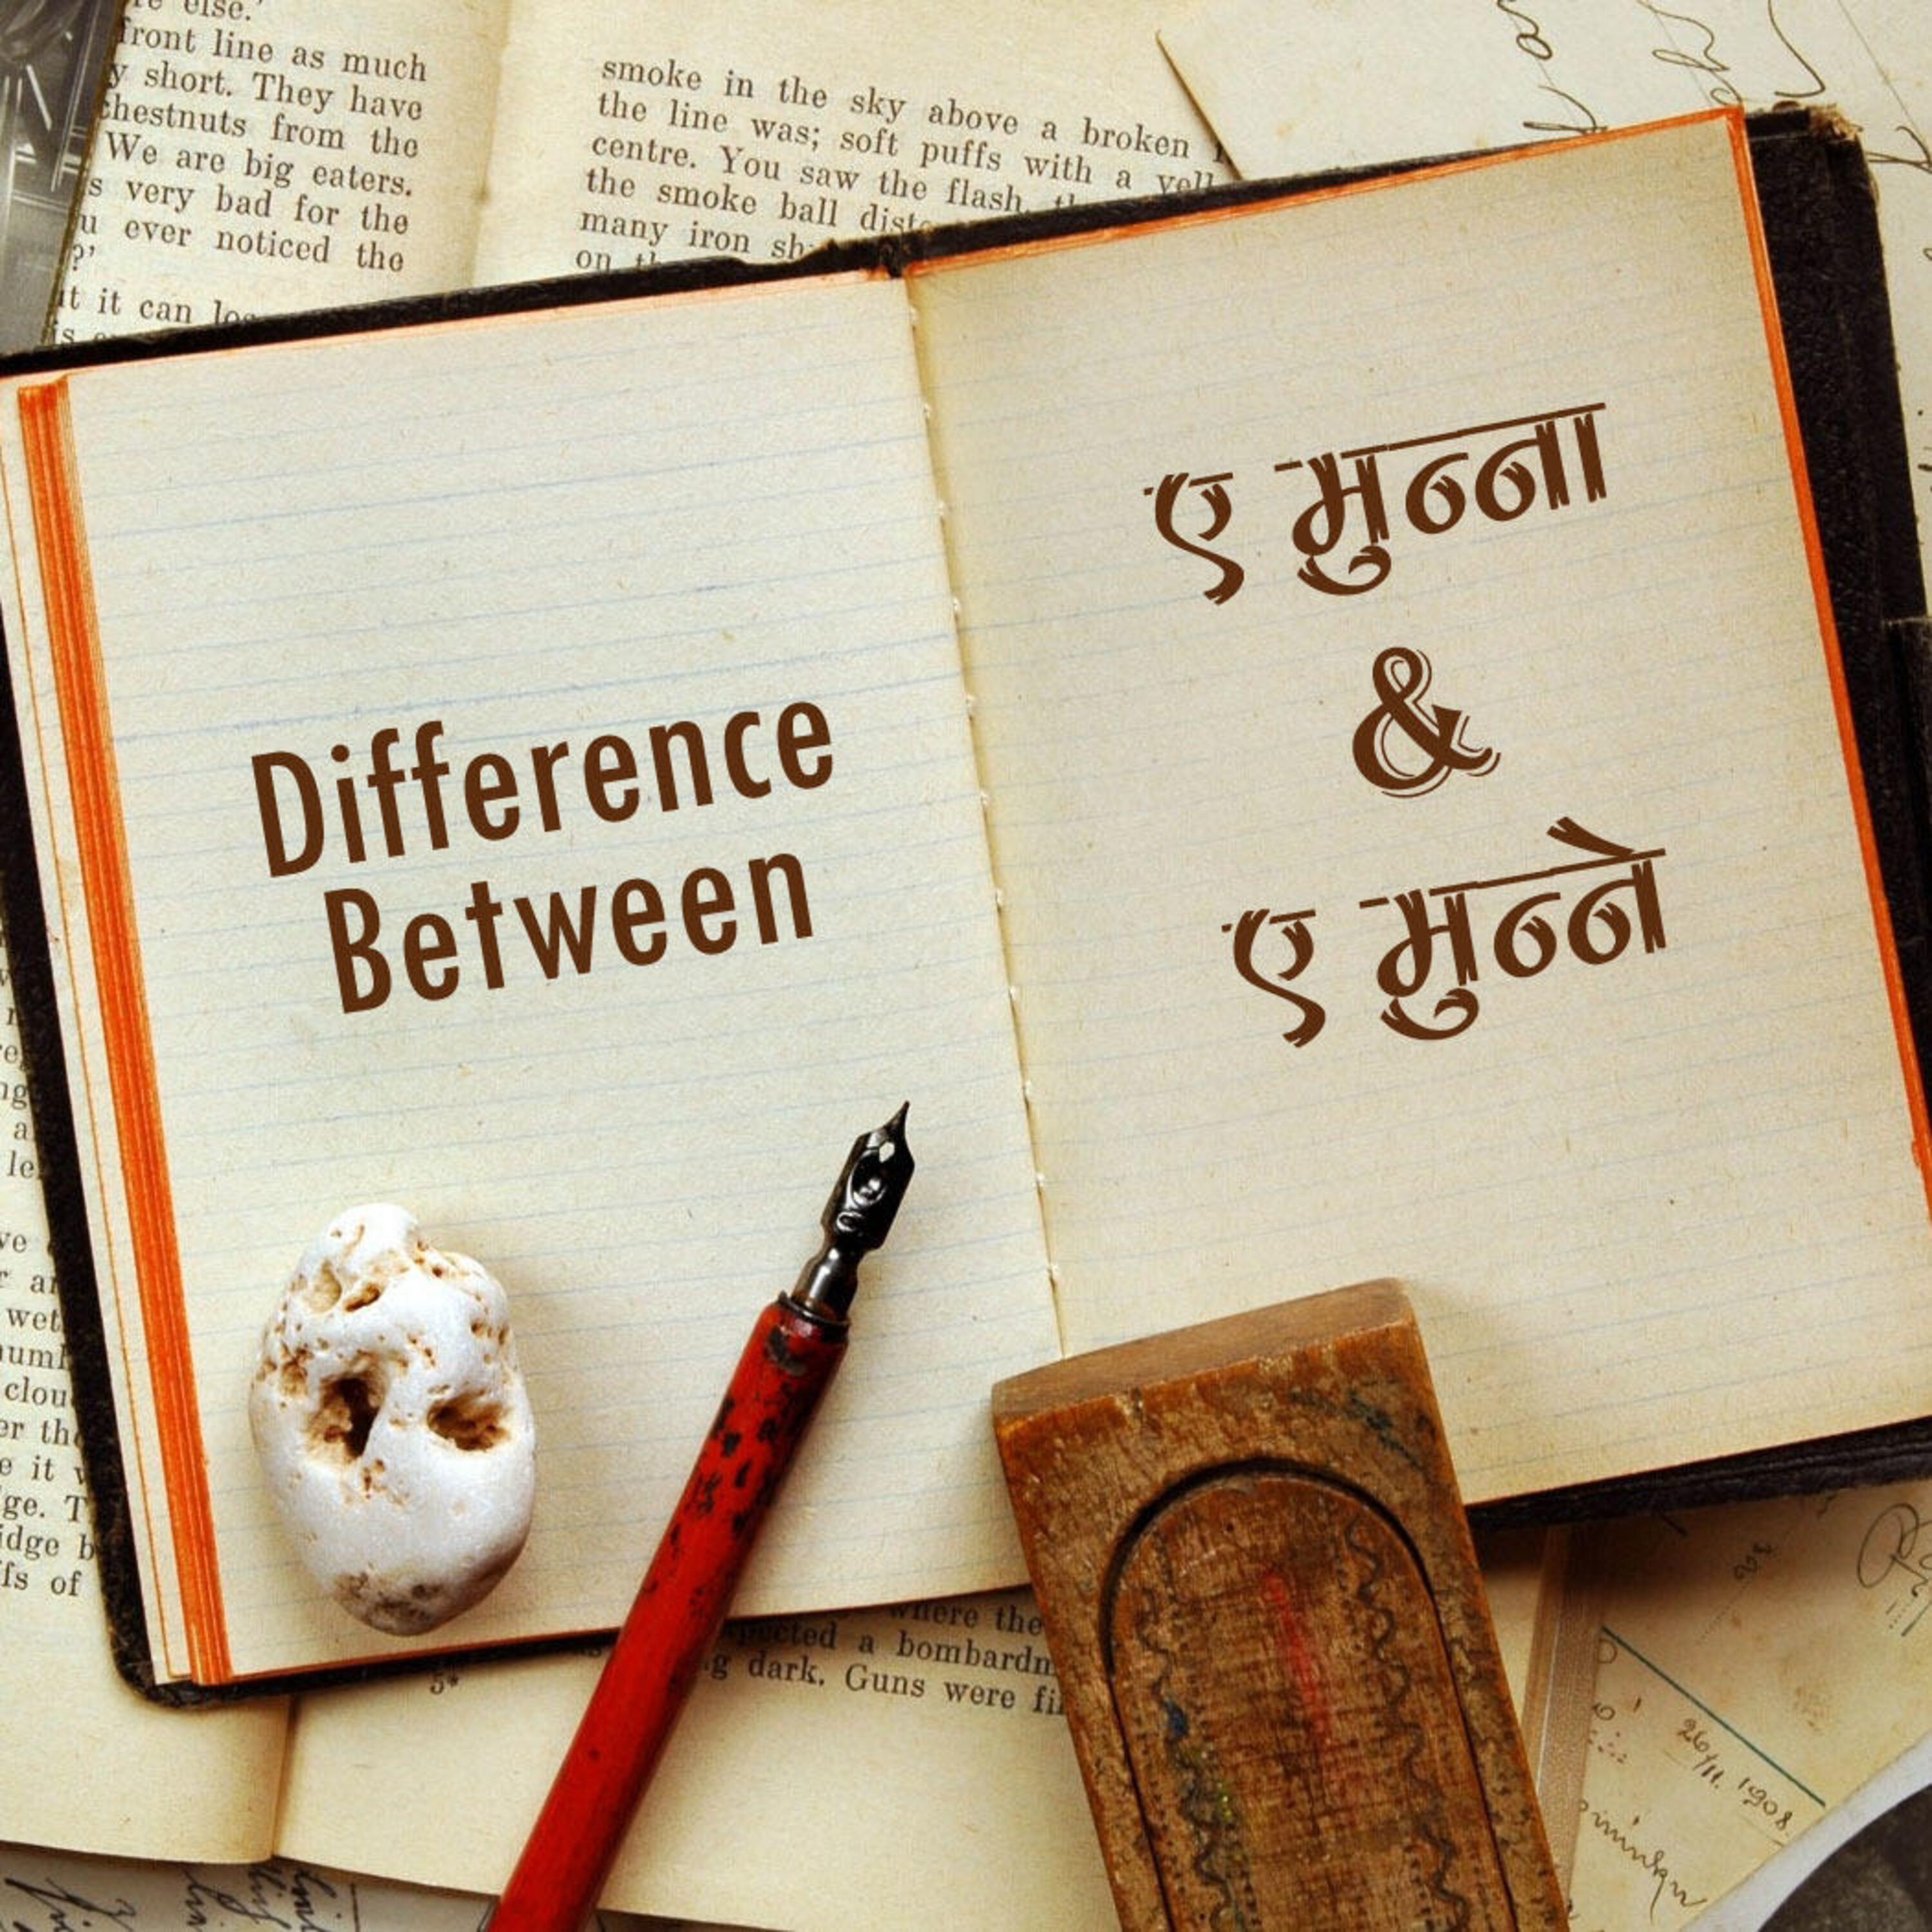 re else.'
front line as much
y short. They have
chestnuts from the
We are big eaters.
s very bad for the
u ever noticed the
?'
it it can
smoke in the sky above a broken
the line was; soft puffs with a
centre. You saw the flash,
the smoke ball
many iron
on
Difference
Between
ए मुन्ना
&
ए मुन्ने
where the
a bombardm
g dark. Guns were
5*
wet
clou
er the
e it
ge. T
idge b
fs of
26/11. 1908